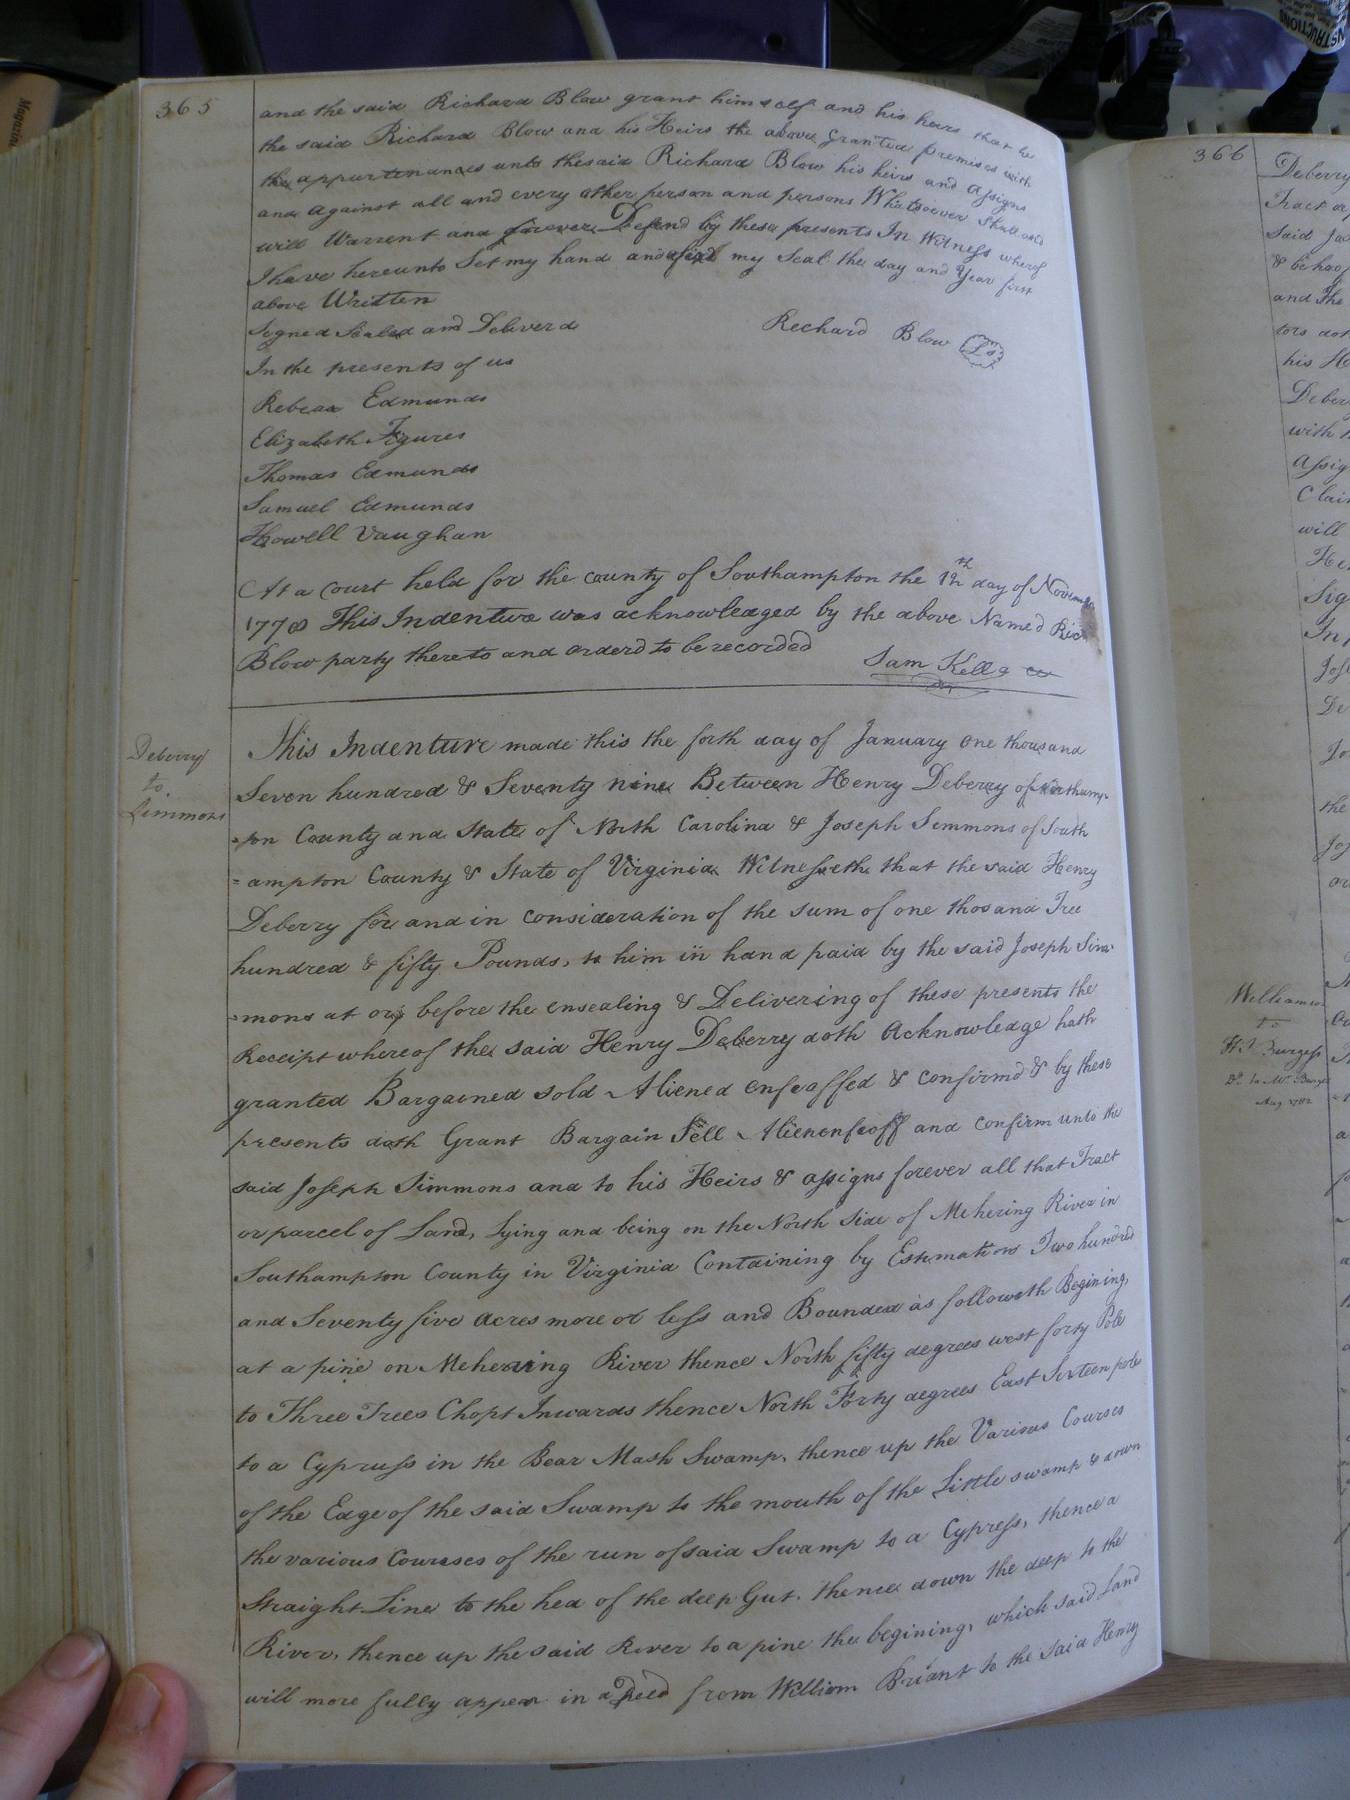 365
and the said Richard Blow grant himself and his heirs that he
the said Richard Blow and his Heirs the above granted premises with
the appurtenances unto the said Richard Blow his heirs and assigns
and against all and every other person and persons Whatsoever shall and
will Warrent and forever Defend by these presents In Witness wherof
I have hereunto Set my hand and my Seal the day and Year first
above Written
Signed Sealed and Deliverd
Richard Blow Ls
In the presents of us
Rebeca Edmunds
Elizabeth Figures
Thomas Edmunds
Samuel Edmunds
Howell Vaughan
At a Court held for the county of Southampton the 12th day of Novem
1778 This Indenture was acknowledged by the above Named Ric
Blow party thereto and orderd to be recorded
Sam Kello
Deberry
to
Simmons
This Indenture made this the forth day of January one thousand
Seven hundred & Seventy nine Between Henry Deberry of Northamp-
-ton County and State of North Carolina & Joseph Simmons of South
=ampton County & State of Virginia Witnesseth that the said Henry
Deberry for and in consideration of the sum of one thosand Tree
hundred & fifty Pounds, to him in hand paid by the said Joseph Sim-
-mons at or before the ensealing & Delivering of these presents the
Receipt whereof the said Henry Deberry doth Acknowledge hath
granted Bargained sold Aliened enfeoffed & confirmd & by these
presents doth Grant Bargain Sell Alienenfeoff and confirm unto the
said Joseph Simmons and to his Heirs & assigns forever all that Tract
or parcel of Land, lying and being on the North Side of Mehering River in
Southampton County in Virginia Containing by Estimation Two hundred
and Seventy five acres more or less and Bounded as followeth Begining,
at a pine on Mehering River thence North fifty degrees west forty Pole
to Three Trees Chopt Inwards thence North Forty degrees East Sixteen pole
to a Cypruss in the Bear Mash Swamp, thence up the Various Courses
of the Edge of the said Swamp to the mouth of the Little swamp & down
the various Courses of the run of said Swamp to a Cypress, thence a
Straight Line to the hea of the deep Gut. thence down the deep to the
River, thence up the said River to a pine the begining, which said Land
will more fully appear in a Deed from William Briant to the said Henry
366
Deberry
Tract or
said Jo
and the
his He
Deber
with
Assig
Clai
will
He
Sig
In
Jos
De
Jo
the
Jos
or
Williamson
to
Burgess
Mr. Burges
Aug 1782